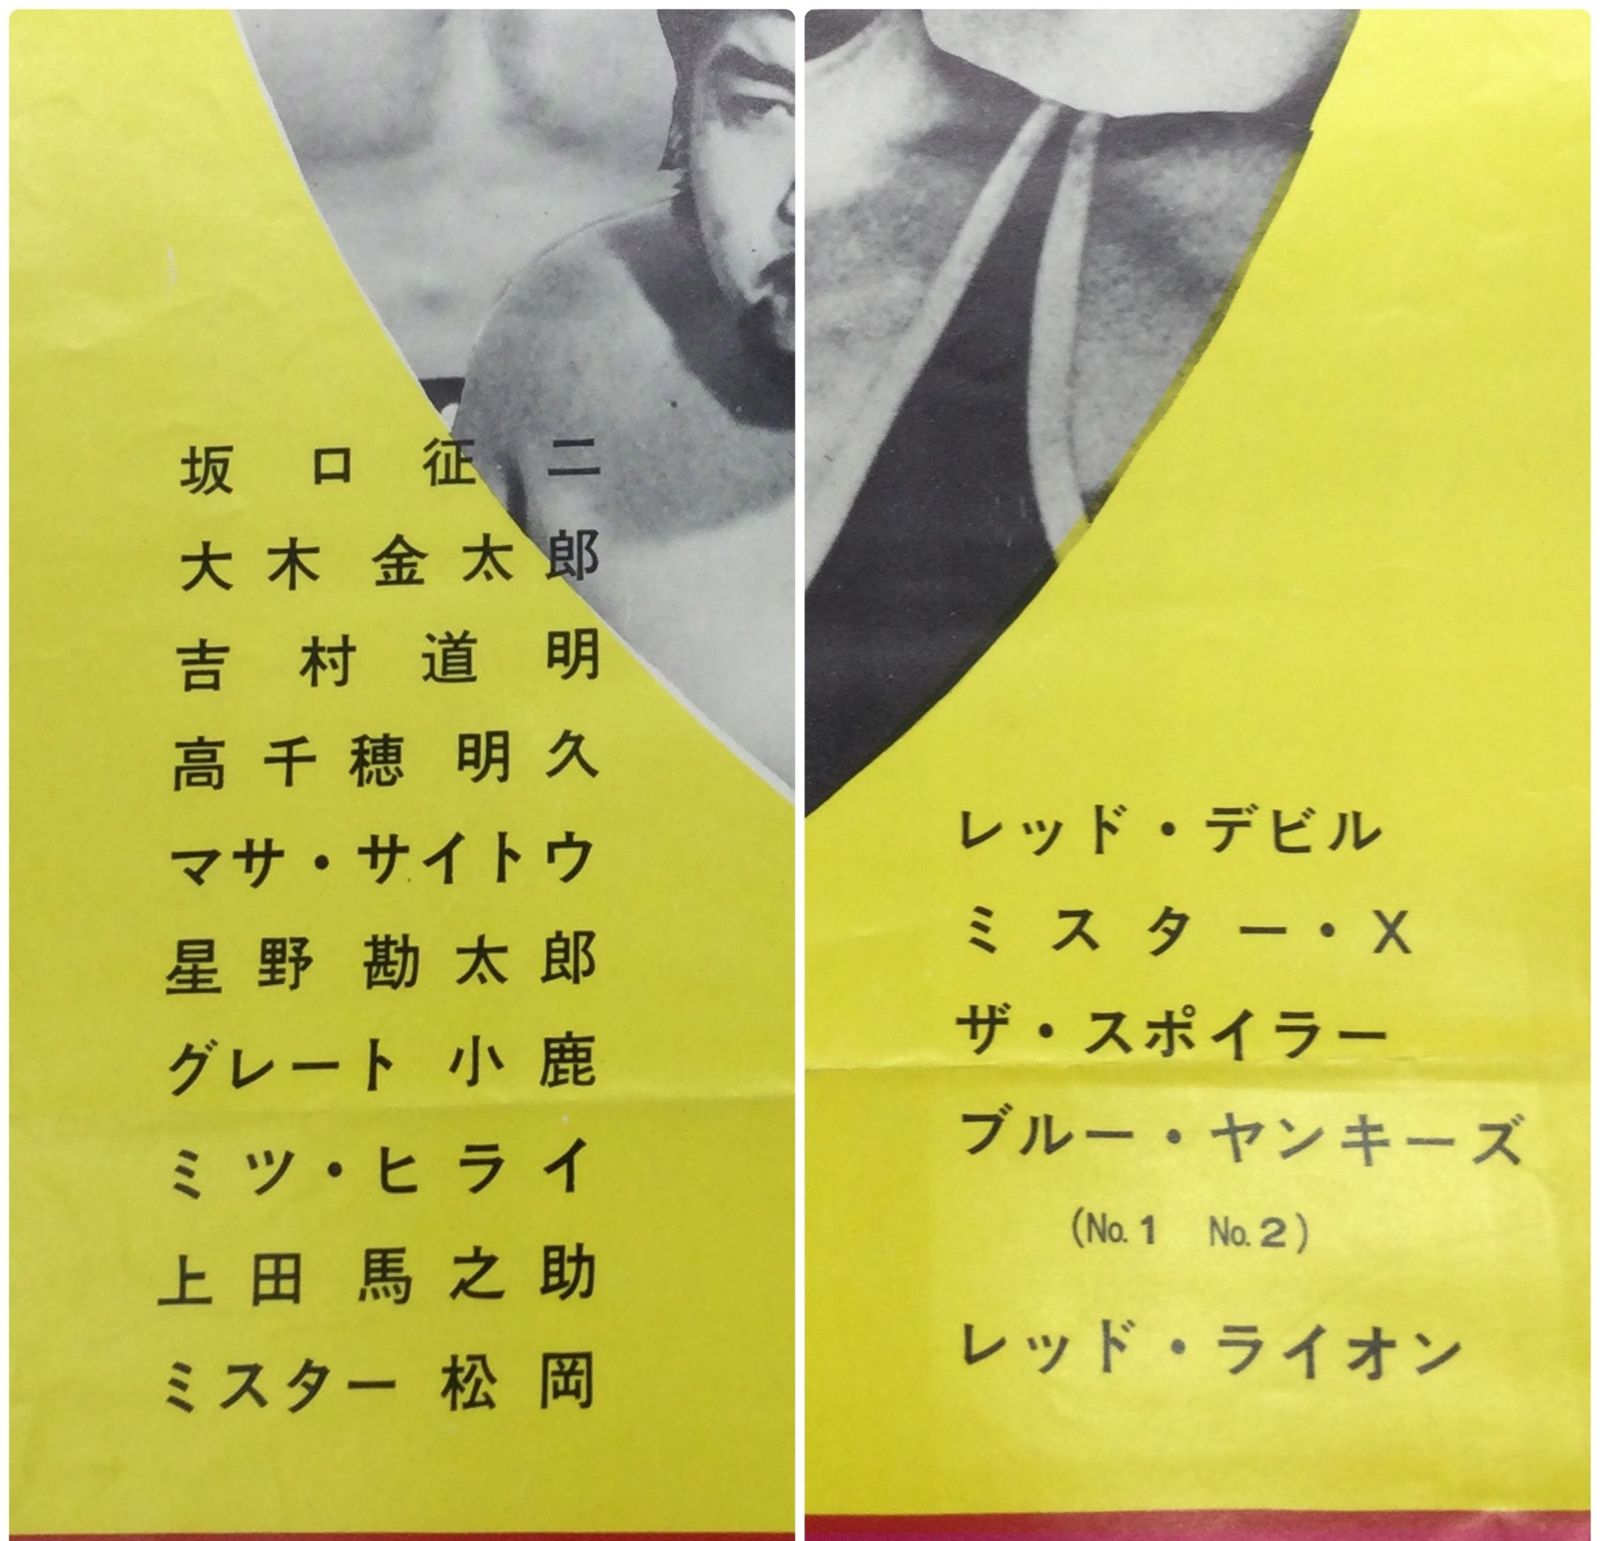 坂口征二
大木金太郎
吉村道明
高千穂明久
マサ・サイトウ
星野勘太郎
グレート小鹿
ミツ・ヒライ
上田馬之助
ミスター松岡
レッド・デビル
ミスター・X
ザ・スポイラー
ブルー・ヤンキーズ
(No.1 No.2)
レッド・ライオン